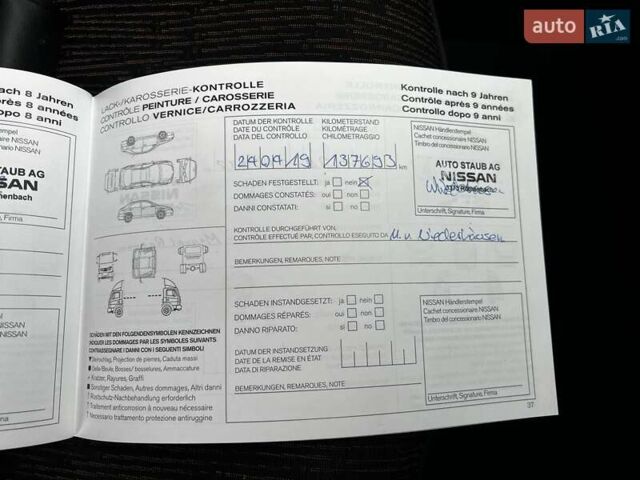 auto RIA
.com
nach 8 Jahren
après 8 années
dopo 8 anni
NISSAN Händlerstempel
Cachet concessionnaire NISSAN
Timbro del concessionario NISSAN
STAUB AG
SSAN
Firma
LACK-/KAROSSERIE-KONTROLLE
CONTRÔLE PEINTURE / CAROSSERIE
CONTROLLO VERNICE/CARROZZERIA
Kontrolle nach 9 Jahren
Contrôle après 9 années
Controllo dopo 9 anni
DATUM DER KONTROLLE
DATE DU CONTRÔLE
DATA DEL CONTROLLO
KILOMETERSTAND
KILOMÉTRAGE
CHILOMETRAGGIO
24 04 19
137693 km
SCHADEN FESTGESTELLT: ja nein
DOMMAGES CONSTATÉS: oui non
DANNI CONSTATATI: si no
NISSAN Händlerstempel
Cachet concessionnaire NISSAN
Timbro del concessionario NISSAN
AUTO STAUB AG
NISSAN
Unterschrift, Signature, Firma
KONTROLLE DURCHGEFÜHRT VON:
CONTRÔLE EFFECTUÉ PAR, CONTROLLO ESEGUITO DA
BEMERKUNGEN, REMARQUES, NOTE
SCHADEN INSTANDGESETZT: ja nein
DOMMAGES RÉPARÉS: oui non
DANNI RIPARATO: si no
DATUM DER INSTANDSETZUNG
DATE DE LA REMISE EN ÉTAT
DATA DI RIPARAZIONE
BEMERKUNGEN, REMARQUES, NOTE
NISSAN Händlerstempel
Cachet concessionnaire NISSAN
Timbro del concessionario NISSAN
Unterschrift, Signature, Firma
SCHÄDEN MIT DEN FOLGENDEN SYMBOLEN KENNZEICHNEN
INDIQUER LES DOMMAGES PAR LES SYMBOLES SUIVANTS
CONTRASSEGNARE I DANNI CON I SEGUENTI SIMBOLI
Steinschlag, Projection de pierres, Caduta massi
Delle/Beule, Bosses/bosselures, Ammaccature
Kratzer, Rayures, Graffi
Sonstiger Schaden, Autres dommages, Altri danni
Rostschutz-Nachbehandlung erforderlich
Traitement anticorrosion à nouveau nécessaire
Necessario trattamento protezione antiruggine
37